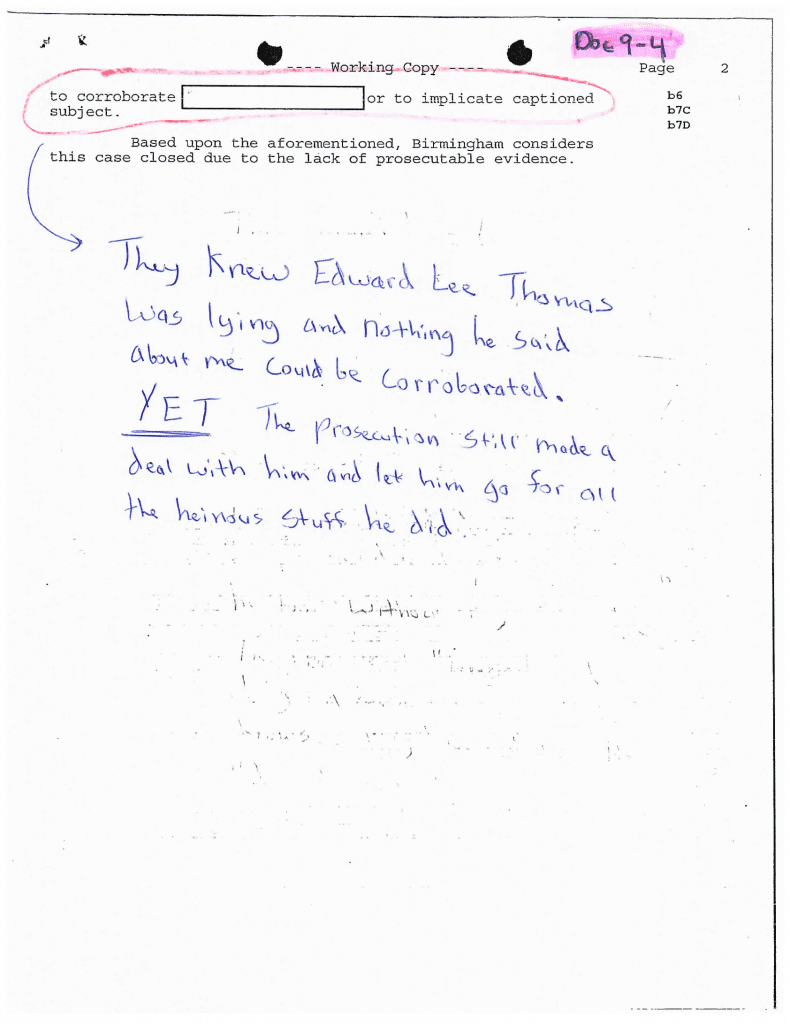 Doc 9-4
---- Working Copy ---- Page 2
to corroborate or to implicate captioned b6
subject. b7C
b7D
Based upon the aforementioned, Birmingham considers
this case closed due to the lack of prosecutable evidence.
They Knew Edward Lee Thomas
was lying and nothing he said
about me could be corroborated.
YET The prosecution still made a
deal with him and let him go for all
the heinous stuff he did!